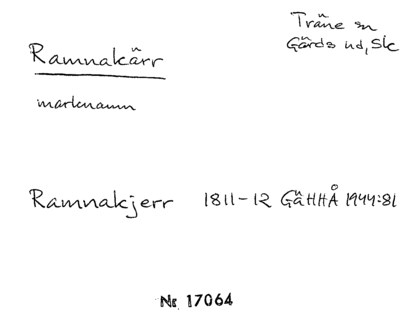 Ramnakärr
Träne sn
Gärds hd, Sk
marknamn
Ramnakjerr 1811-12 GäHHÅ 1944:81
Nr 17064